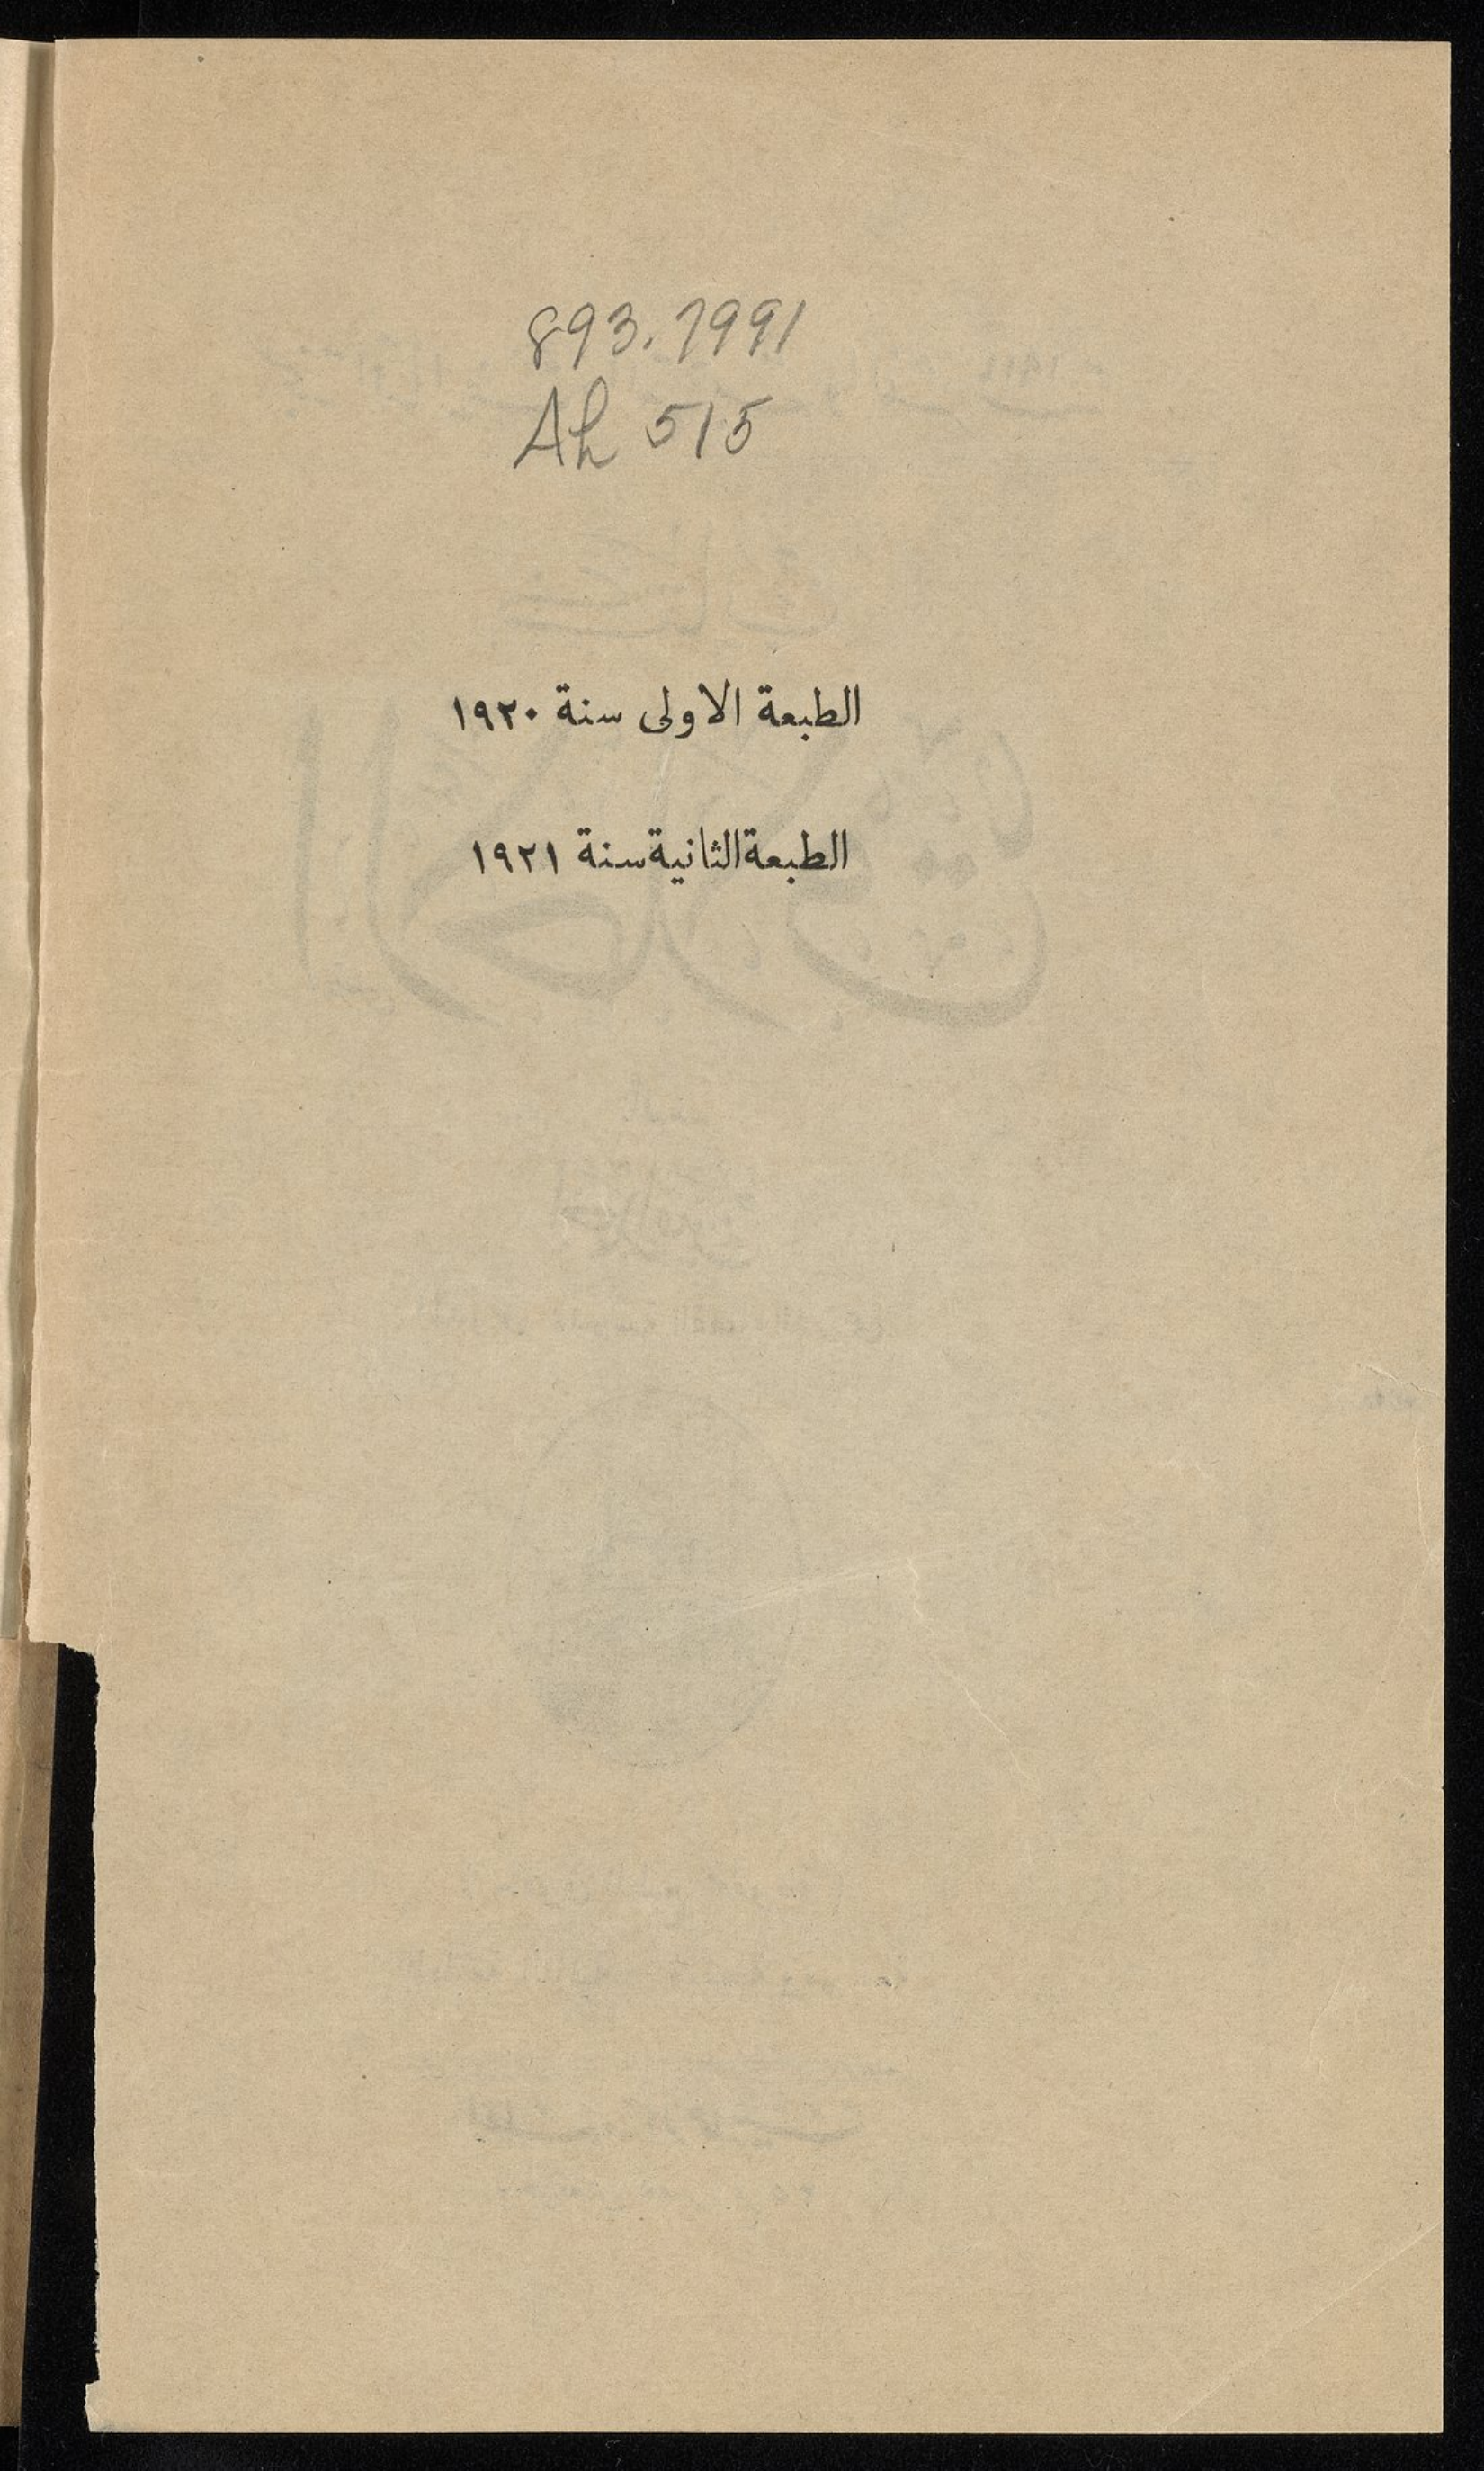 893.7991
Ah 515
الطبعة الاولى سنة ١٩٢٠
الطبعة الثانية سنة ١٩٢١